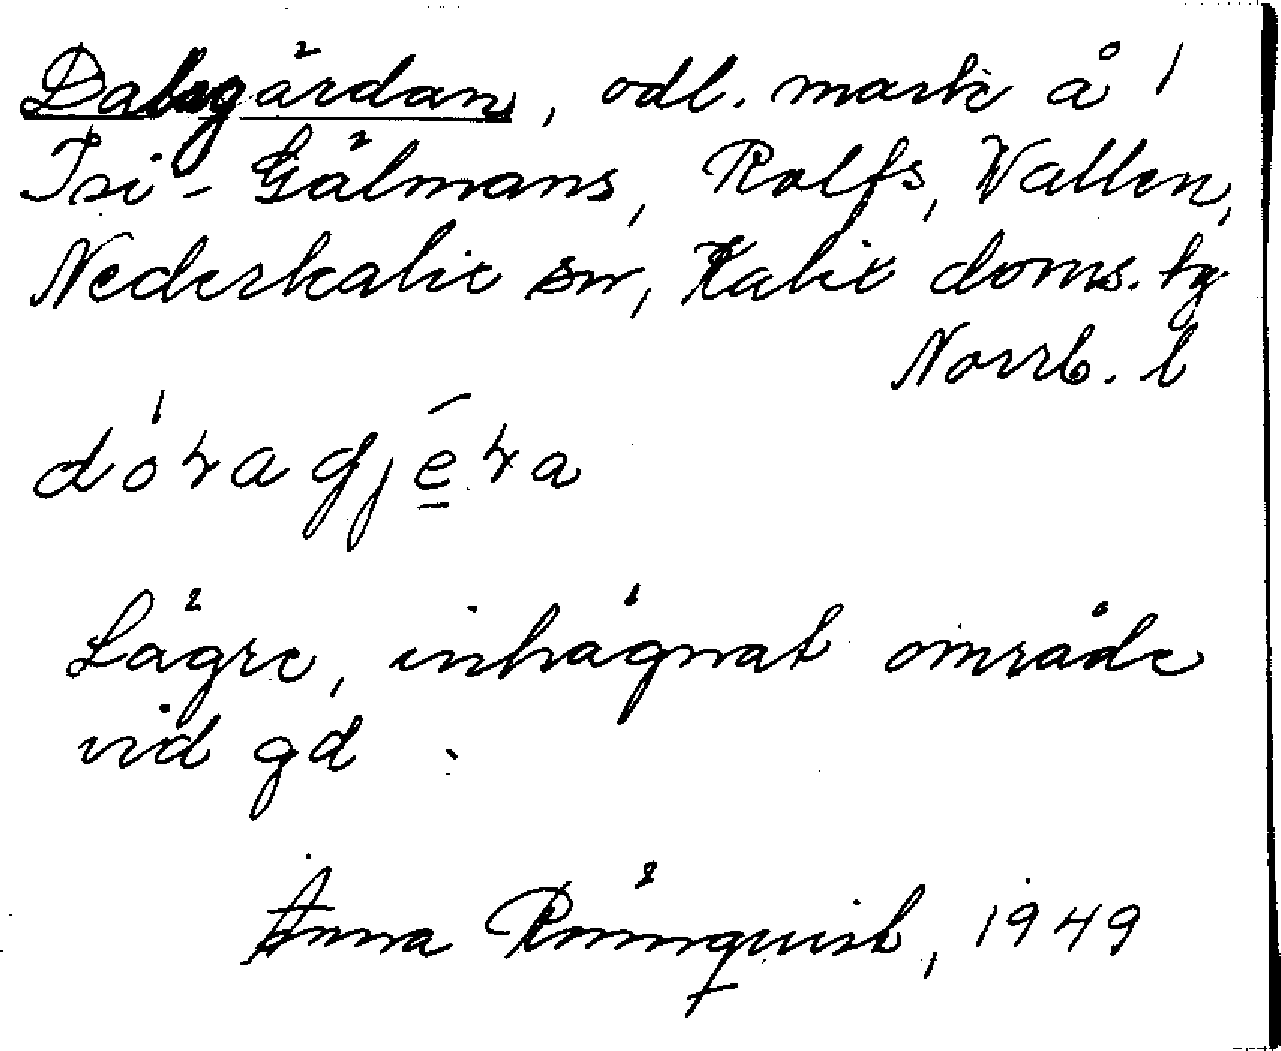 Dalsgärdan, odl. mark å 1
Isi-Gälmans, Rolfs, Vallen,
Nederkalix sn, Kalix doms. tg
Norrb. l
dóɽagjēɽa
Lägre, inhägnat område
vid gd.
Anna Rönnquist, 1949